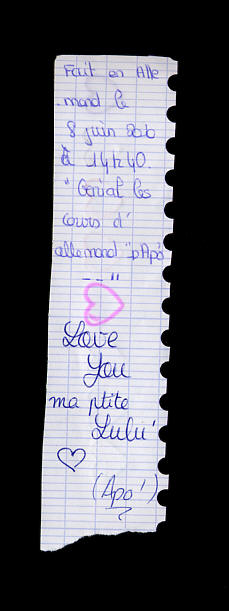 Fait en Alle
mand le
8 juin 2006
à 14h40.
"Génial les
cours d'
allemand "pApo
--"
Love
You
ma ptite
Lulu'
(Apo')